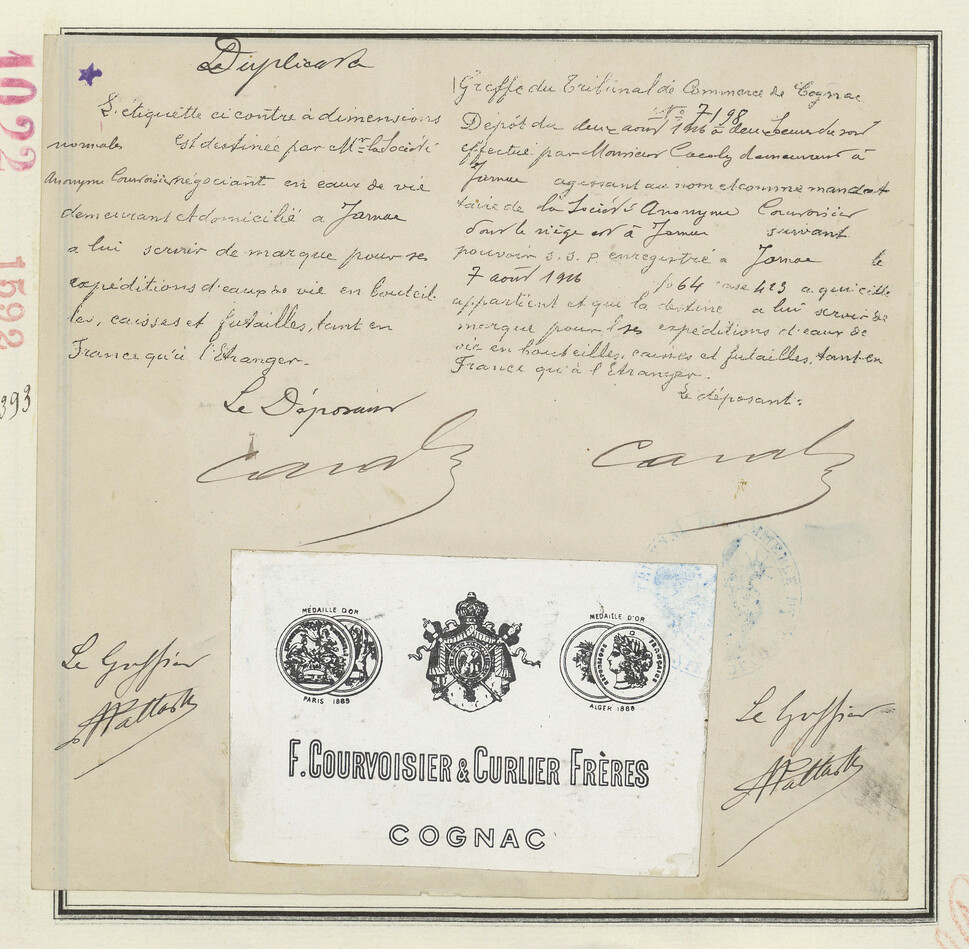 1022
1598
393
Duplicata
L'étiquette ci contre à dimensions
normales est destinée par Mr la Société
Anonyme Courvoisier négociant en eaux de vie
demeurant et domicilié a Jarnac
a lui servir de marque pour ses
expéditions d'eaux de vie en bouteil
les, caisses et futailles, tant en
France qu'à l'Etranger.
Le Déposant
Greffe du Tribunal de Commerce de Cognac
No 7198
Dépôt du deux août 1916 à deux heures du soir
effectué par Monsieur demeurant à
Jarnac agissant au nom et comme manda
taire de la Société Anonyme Courvoisier
dont le siège est à Jarnac suivant
pouvoir S.S.P. enregistré a Jarnac le
7 août 1916 fo 64 case 423 a qui elle
appartient et que la destine a lui servir de
marque pour ses expéditions d'eaux de
vie en bouteilles, caisses et futailles, tant en
France qu'à l'Etranger.
Le déposant:
Le Greffier
MÉDAILLE D'OR
PARIS 1889
MÉDAILLE D'OR
RÉPUBLIQUE FRANÇAISE
ALGER 1888
F. COURVOISIER & CURLIER FRÈRES
COGNAC
Le Greffier